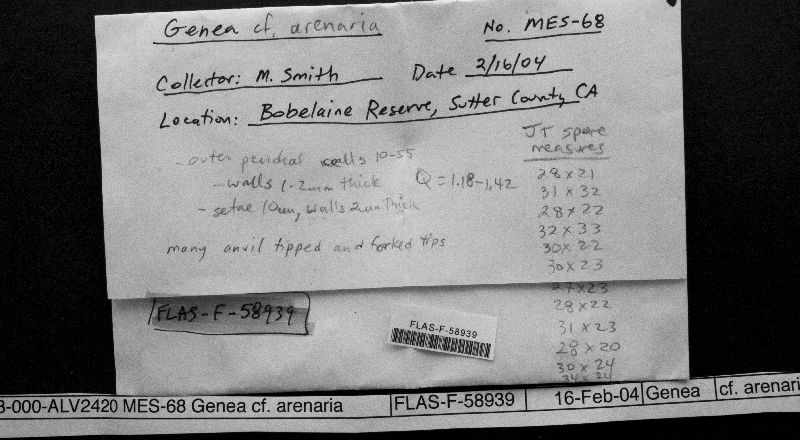 Genea cf. arenaria No. MES-68
Collector: M. Smith Date 2/16/04
Location: Bobelaine Reserve, Sutter County, CA
JT spore
measures
- outer peridial cells 10-55
- walls 1-2um thick Q = 1.18-1.42
- setae 10um, walls 2um thick
many anvil tipped and forked tips
28 x 21
31 x 32
28 x 22
32 x 33
30 x 22
30 x 23
27 x 23
28 x 22
31 x 23
28 x 20
30 x 24
FLAS-F-58939
FLAS-F-58939
3-000-ALV2420 MES-68 Genea cf. arenaria FLAS-F-58939 16-Feb-04 Genea cf. arenari